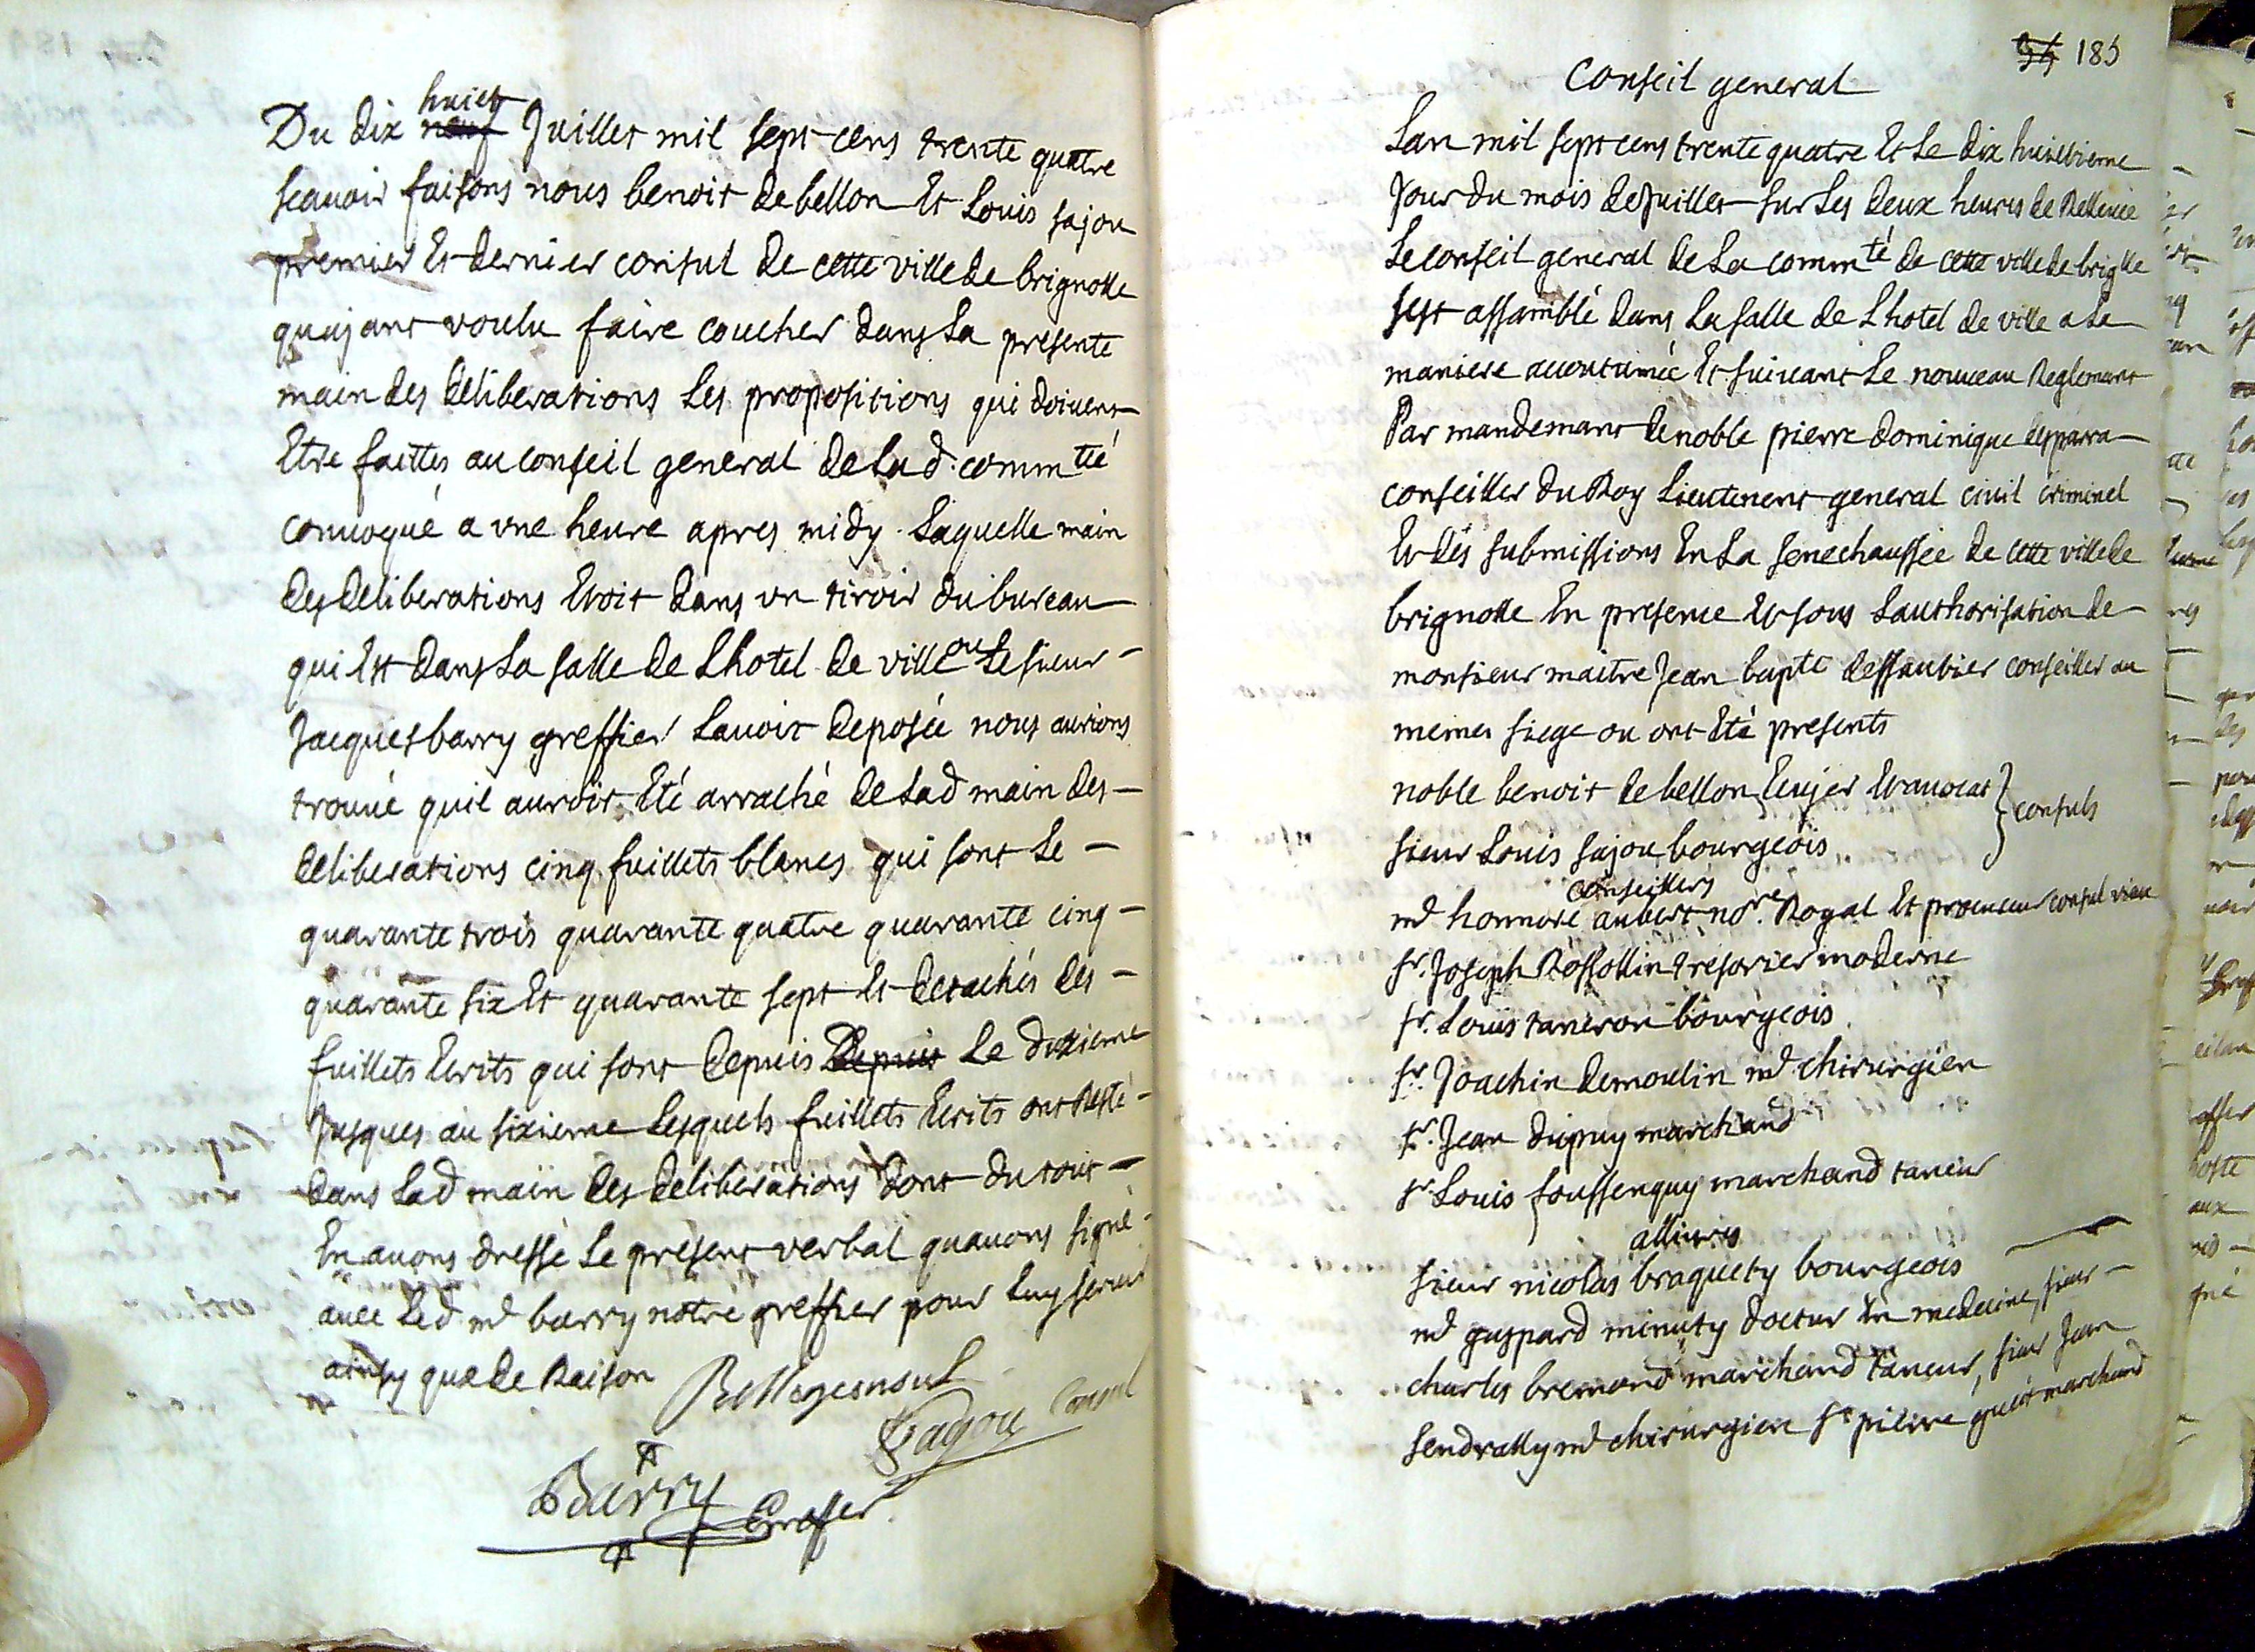 Du dix neuf huict Juillet mil sept cens trente quatre
scavoir faisons nous benoit de bellon Et Louis sajou
premier Et dernier consul de cette ville de brignolle
quajant voulu faire coucher dans La presente
main des deliberations Les propositions qui doivent
Etre faittes au conseil general de Lad. comm.tté
convoqué a une heure apres midy. Laquelle main
des deliberations Etoit dans un tiroir du bureau
qui Est dans La salle de Lhotel de ville ou Le sieur
Jacques barry greffier Lavoit deposée nous aurions
trouvé quil auroit Eté arraché de Lad main des
deliberations cinq fuillets blancs qui sont Le
quarante trois quarante quatre quarante cinq
quarante six Et quarante sept Et detachés des
fuillets Ecrits qui sont depuis Depuis Le duxieme
Jusques au sixieme Lesquels fuillets Ecrits ont Resté
dans Lad main des deliberations dont du tout
En avons dressé Le present verbal quavons signé
avec Led me barry notre greffier pour Luy servir
ainsy que de Raison
Sajou Consul
Barry Greffier
34 185
Conseil general
Lan mil sept cens trente quatre Et Le dix huictieme
Jour du mois de Juillet sur Les deux heures de Relevée
Le conseil general de La comm.té de cette ville de briglle
sest assamblé dans La salle de Lhotel de ville a La
maniere accoutumée Et suivant Le nouveau Reglemant
Par mandemant de noble pierre dominique desparra
conseiller du Roy Lieutenent general civil criminel
Et des submissions En La senechaussée de cette ville de
brignolle En presence Et sous Lauthorisation de
monsieur maitre Jean bapte dessaubier conseiller au
meme siege ou ont Eté presents
noble benoit de bellon Ecujer Et avocat } consuls
sieur Louis sajou bourgeois
conseillers
me honnoré aubert nore. Royal Et procureur consul vieux
sr. Joseph Rossollin tresorier moderne
sr. Louis taneron bourgeois
sr. Joachin demoulin me chirurgien
sr. Jean dupuy marchand
sr Louis foussenquy marchand taneur
alliures
sieur nicolas braquety bourgeois
me gaspard minuty docteur En medecine, sieur
charles bremond marchand taneur, sieur Jean
sendrally me chirurgien sr pierre marchand